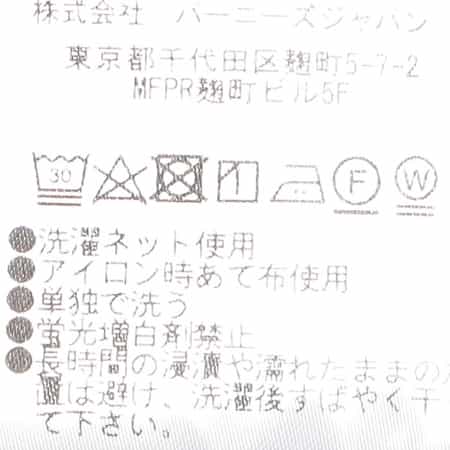 株式会社 バーニーズジャパン
東京都千代田区麹町5-7-2
MFPR麹町ビル5F
30 F W
洗濯ネット使用
アイロン時あて布使用
単独で洗う
蛍光増白剤禁止
長時間の浸漬や濡れたままの
置は避け、洗濯後すばやく干
て下さい。